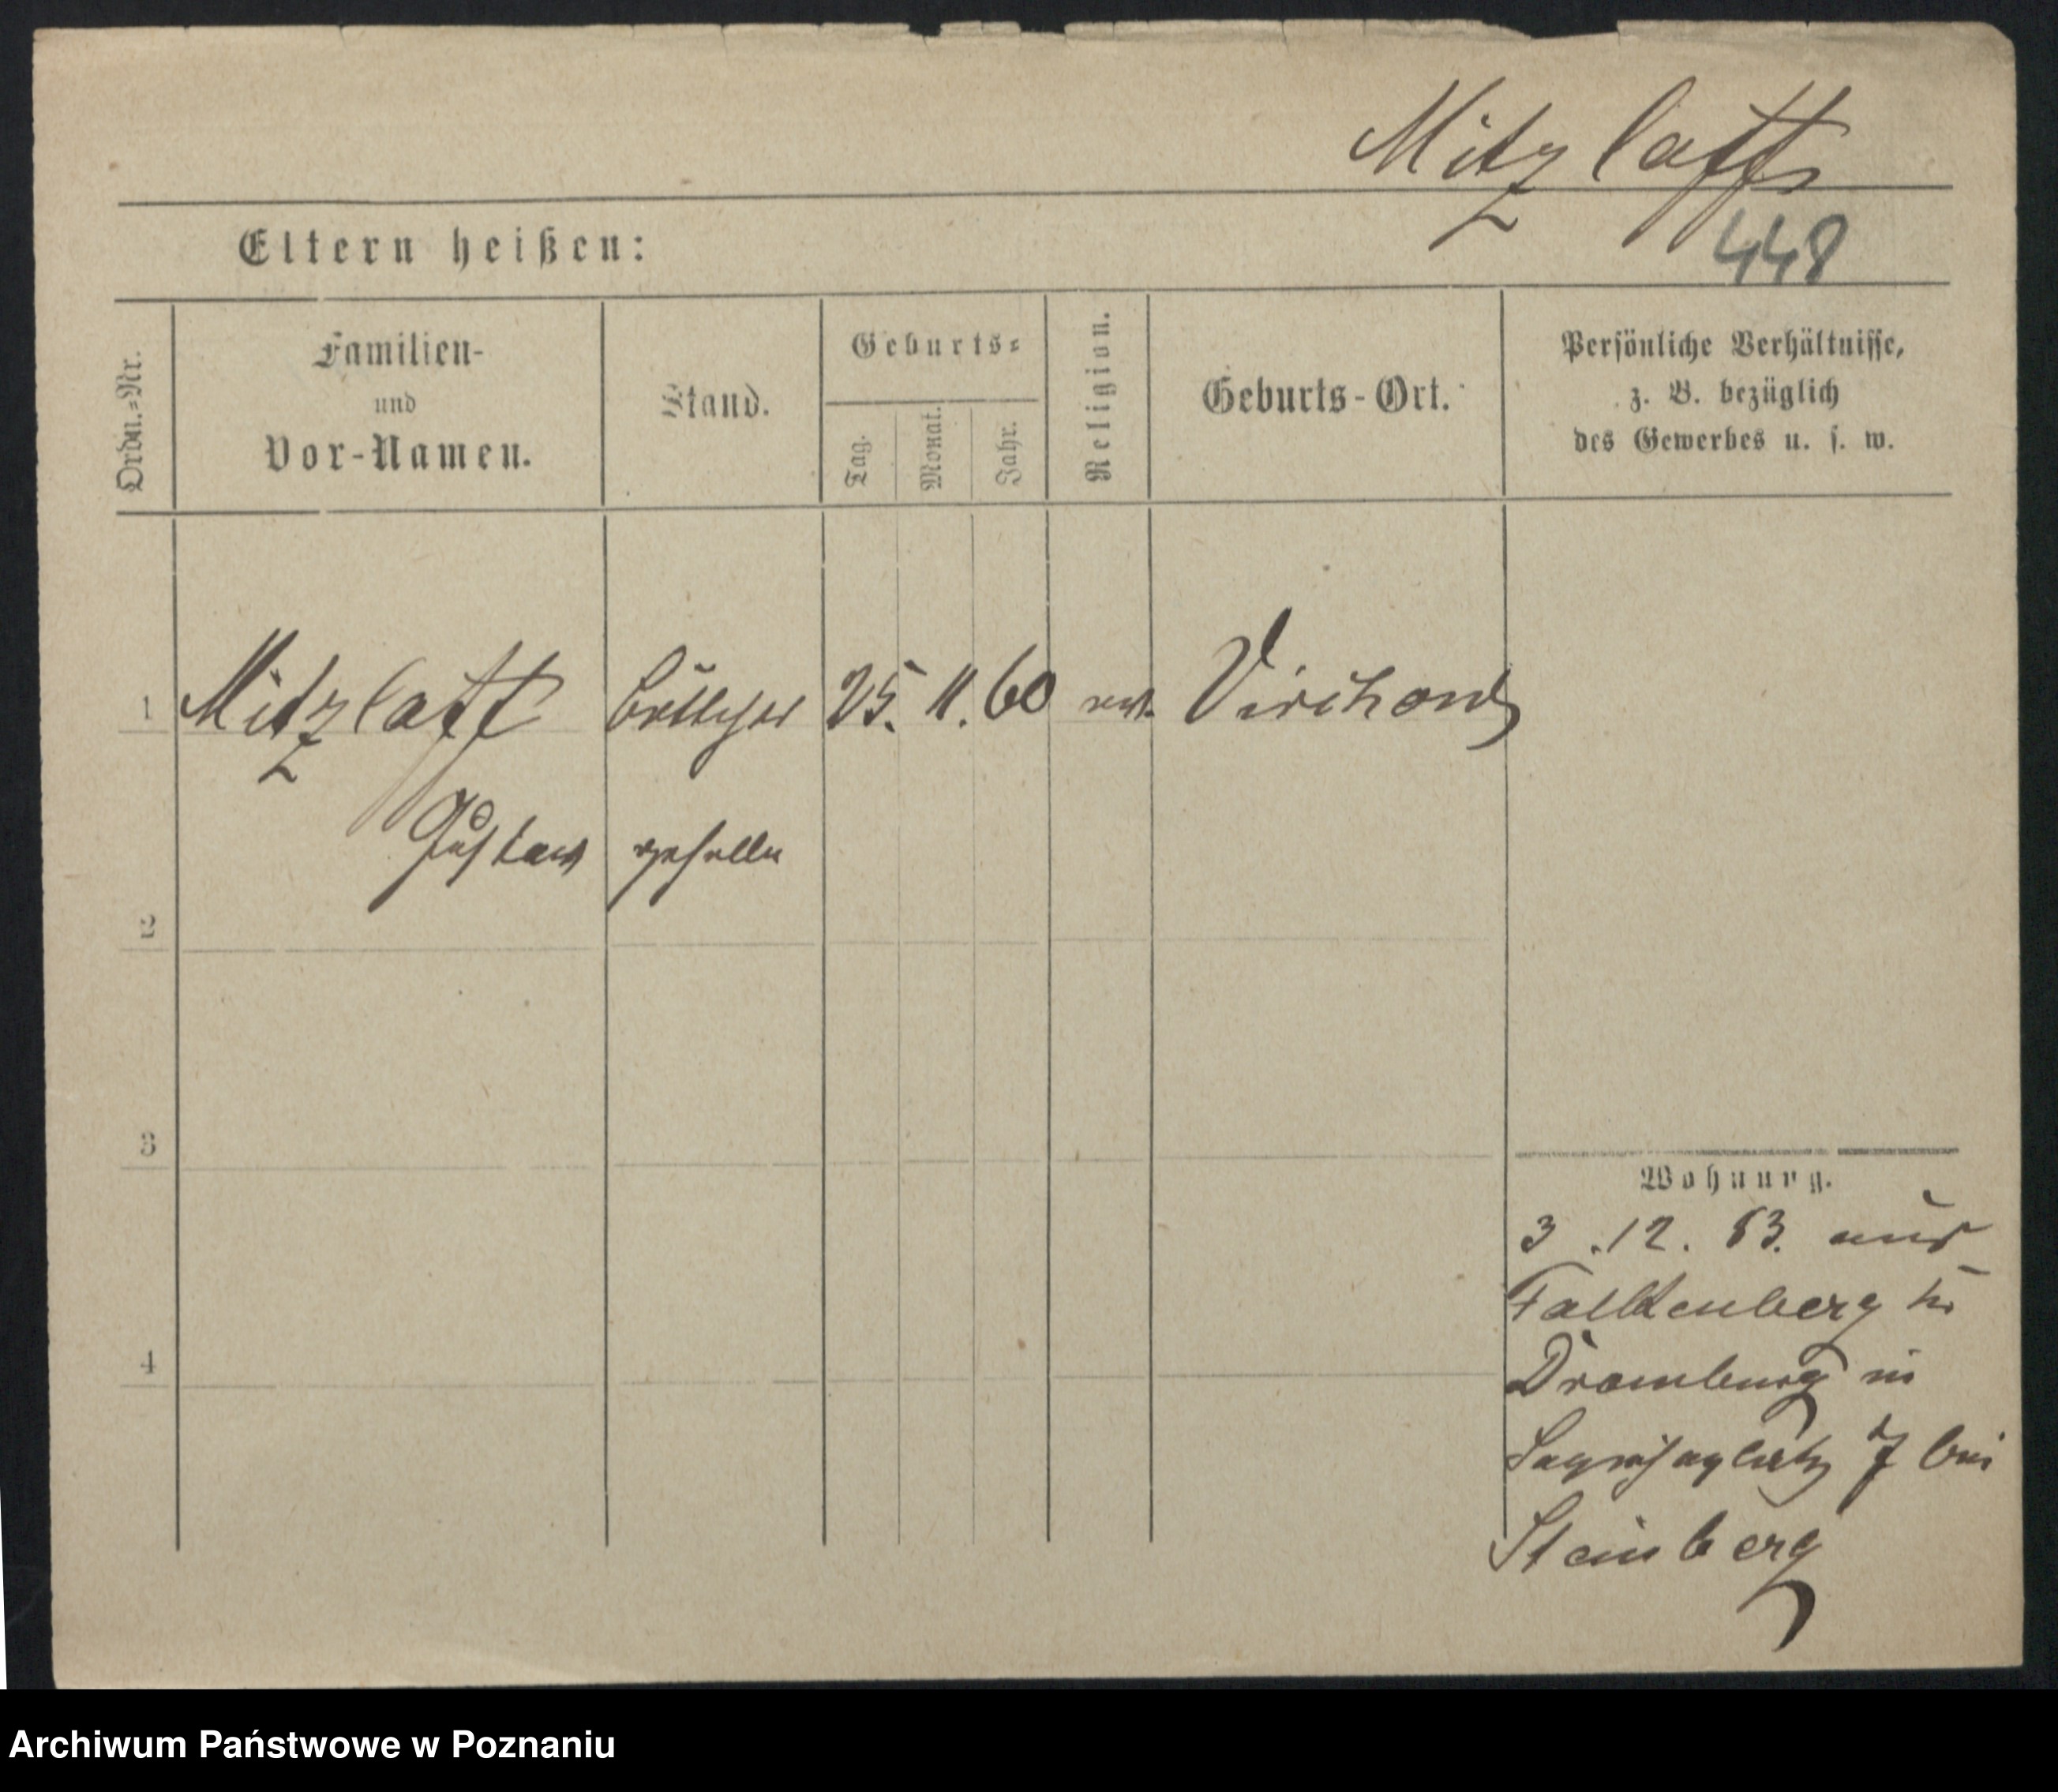 Mitzlaff
448
Eltern heißen:
Ordn.=Nr.
Familien-
und
Vor-Namen.
Stand.
Geburts=
Tag.
Monat.
Jahr.
Religion.
Geburts-Ort.
Persönliche Verhältnisse,
z. B. bezüglich
des Gewerbes u. s. w.
1 Mitzlaff Böttcher 25. 11. 60
Gustav geselle
2
3
Wohnung.
3.12.83. aus
Falkenberg
Dramburg in
7 bei
4
Steinberg
Archiwum Państwowe w Poznaniu